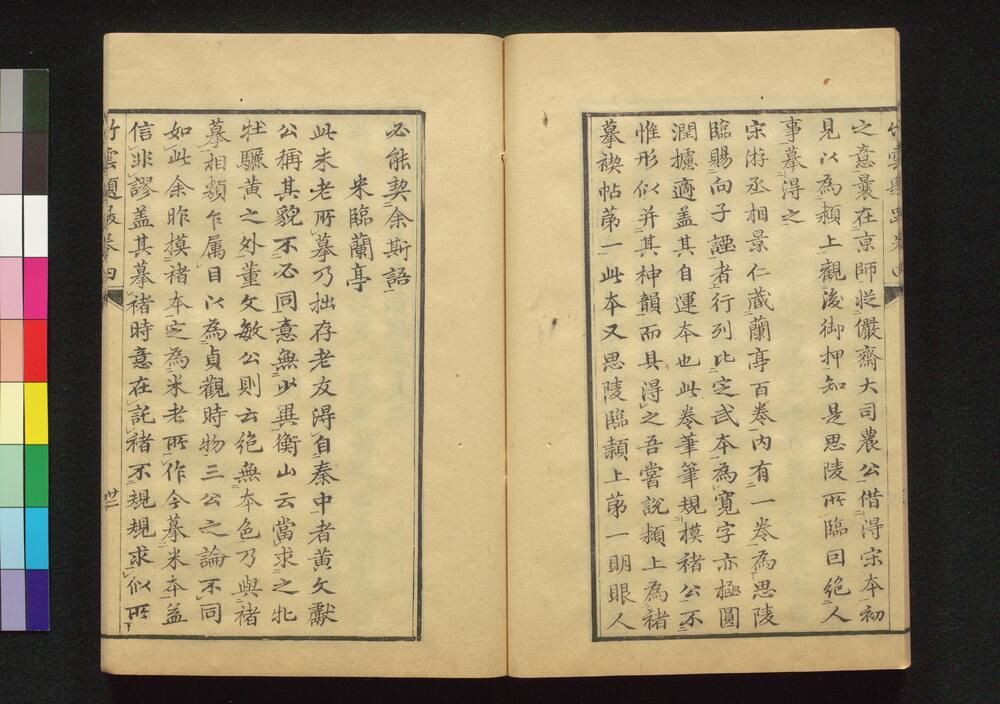 之意曩在京師從儼齋大司農公借得宋本初
見以為潁上觀後御押知是思陵所臨回絶人
事摹得之
宋游丞相景仁蔵蘭亭百卷内有一卷為思陵
臨賜向子諲者行列比定武本為寛字亦極圓
潤攄適盖其自運本也此卷筆筆規模禇公不
惟形似并其神韻而具得之吾嘗説潁上為禇
摹禊帖第一此本又思陵臨潁上第一明眼人
必能契余斯語
米臨蘭亭
此米老所摹乃拙存老友得自秦中者黄文獻
公稱其貌不必同意無少異衡山云當求之牝
牡驪黄之外董文敏公則云絶無本色乃與禇
摹相類乍属目以為貞觀時物三公之論不同
如此余昨摸禇本定為米老所作今摹米本益
信非謬盖其摹禇時意在託禇不規規求似所
竹雲題跋卷四